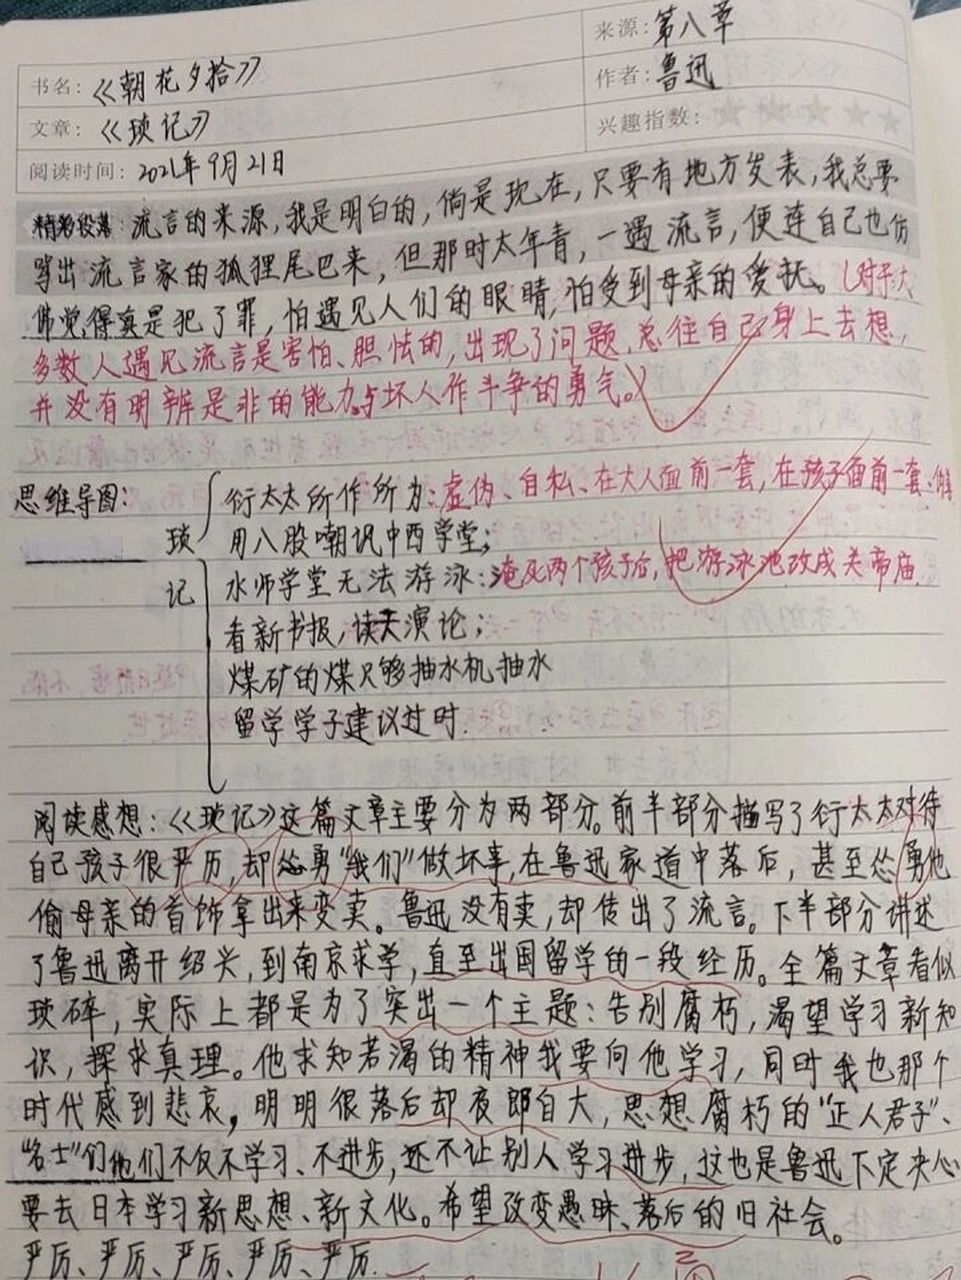 来源：第八章
书名：《朝花夕拾》
作者：鲁迅
文章：《琐记》
兴趣指数：
阅读时间：2021年9月21日
精彩段落：流言的来源，我是明白的，倘是现在，只要有地方发表，我总要
骂出流言家的狐狸尾巴来，但那时太年青，一遇流言，便连自己也仿
佛觉得真是犯了罪，怕遇见人们的眼睛，怕受到母亲的爱抚。（对于大
多数人遇见流言是害怕、胆怯的，出现了问题，总往自己身上去想，
并没有明辨是非的能力与坏人作斗争的勇气。）
思维导图：
琐记
衍太太所作所为：虚伪、自私、在大人面前一套，在孩子面前一套
用八股嘲讽中西学堂；
水师学堂无法游泳：淹死两个孩子后，把游泳池改成关帝庙
看新书报，读天演论；
煤矿的煤只够抽水机抽水
留学学子建议过时.
阅读感想：《琐记》这篇文章主要分为两部分。前半部分描写了衍太太对待
自己孩子很严厉，却怂勇“我们”做坏事，在鲁迅家道中落后，甚至怂勇他
偷母亲的首饰拿出来变卖。鲁迅没有卖，却传出了流言。下半部分讲述
了鲁迅离开绍兴，到南京求学，直至出国留学的一段经历。全篇文章看似
琐碎，实际上都是为了突出一个主题：告别腐朽，渴望学习新知
识，探求真理。他求知若渴的精神我要向他学习，同时我也那个
时代感到悲哀，明明很落后却夜郎自大，思想腐朽的“正人君子”、
“名士”们他们不仅不学习、不进步，还不让别人学习进步，这也是鲁迅下定决心
要去日本学习新思想、新文化。希望改变愚昧、落后的旧社会。
严厉、严厉、严厉、严厉、严厉.